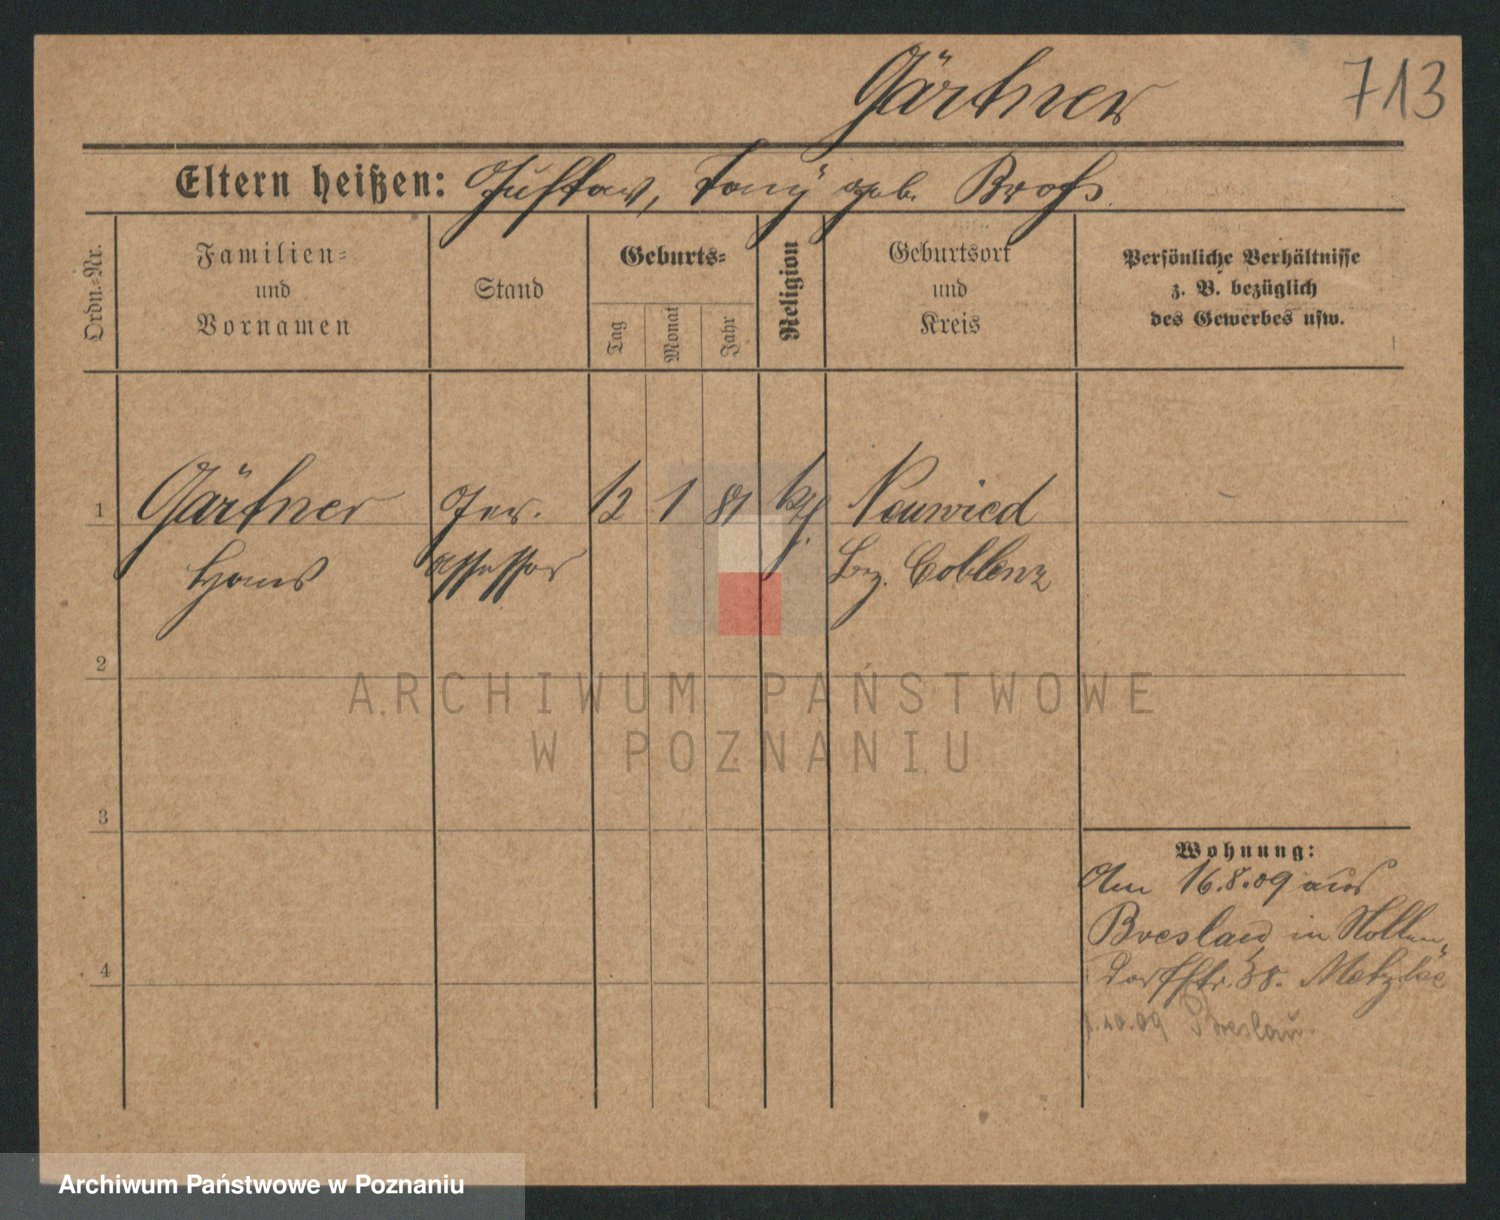 Gärtner
713
Eltern heißen: Gustav, Tony geb. Broß.
Ordn.-Nr.
Familien- und Vornamen
Stand
Geburts-
Tag
Monat
Jahr
Religion
Geburtsort und Kreis
Persönliche Verhältnisse
z. B. bezüglich
des Gewerbes usw.
1 Gärtner Ger. 12 1 81 kth. Neuwied
Hans Assessor Bz. Coblenz
2
ARCHIWUM PAŃSTWOWE
W POZNANIU
3
Wohnung:
Am 16.8.09 aus
Breslau in Nollen-
dorfstr. 38.
4
1.10.09 Breslau.
Archiwum Państwowe w Poznaniu